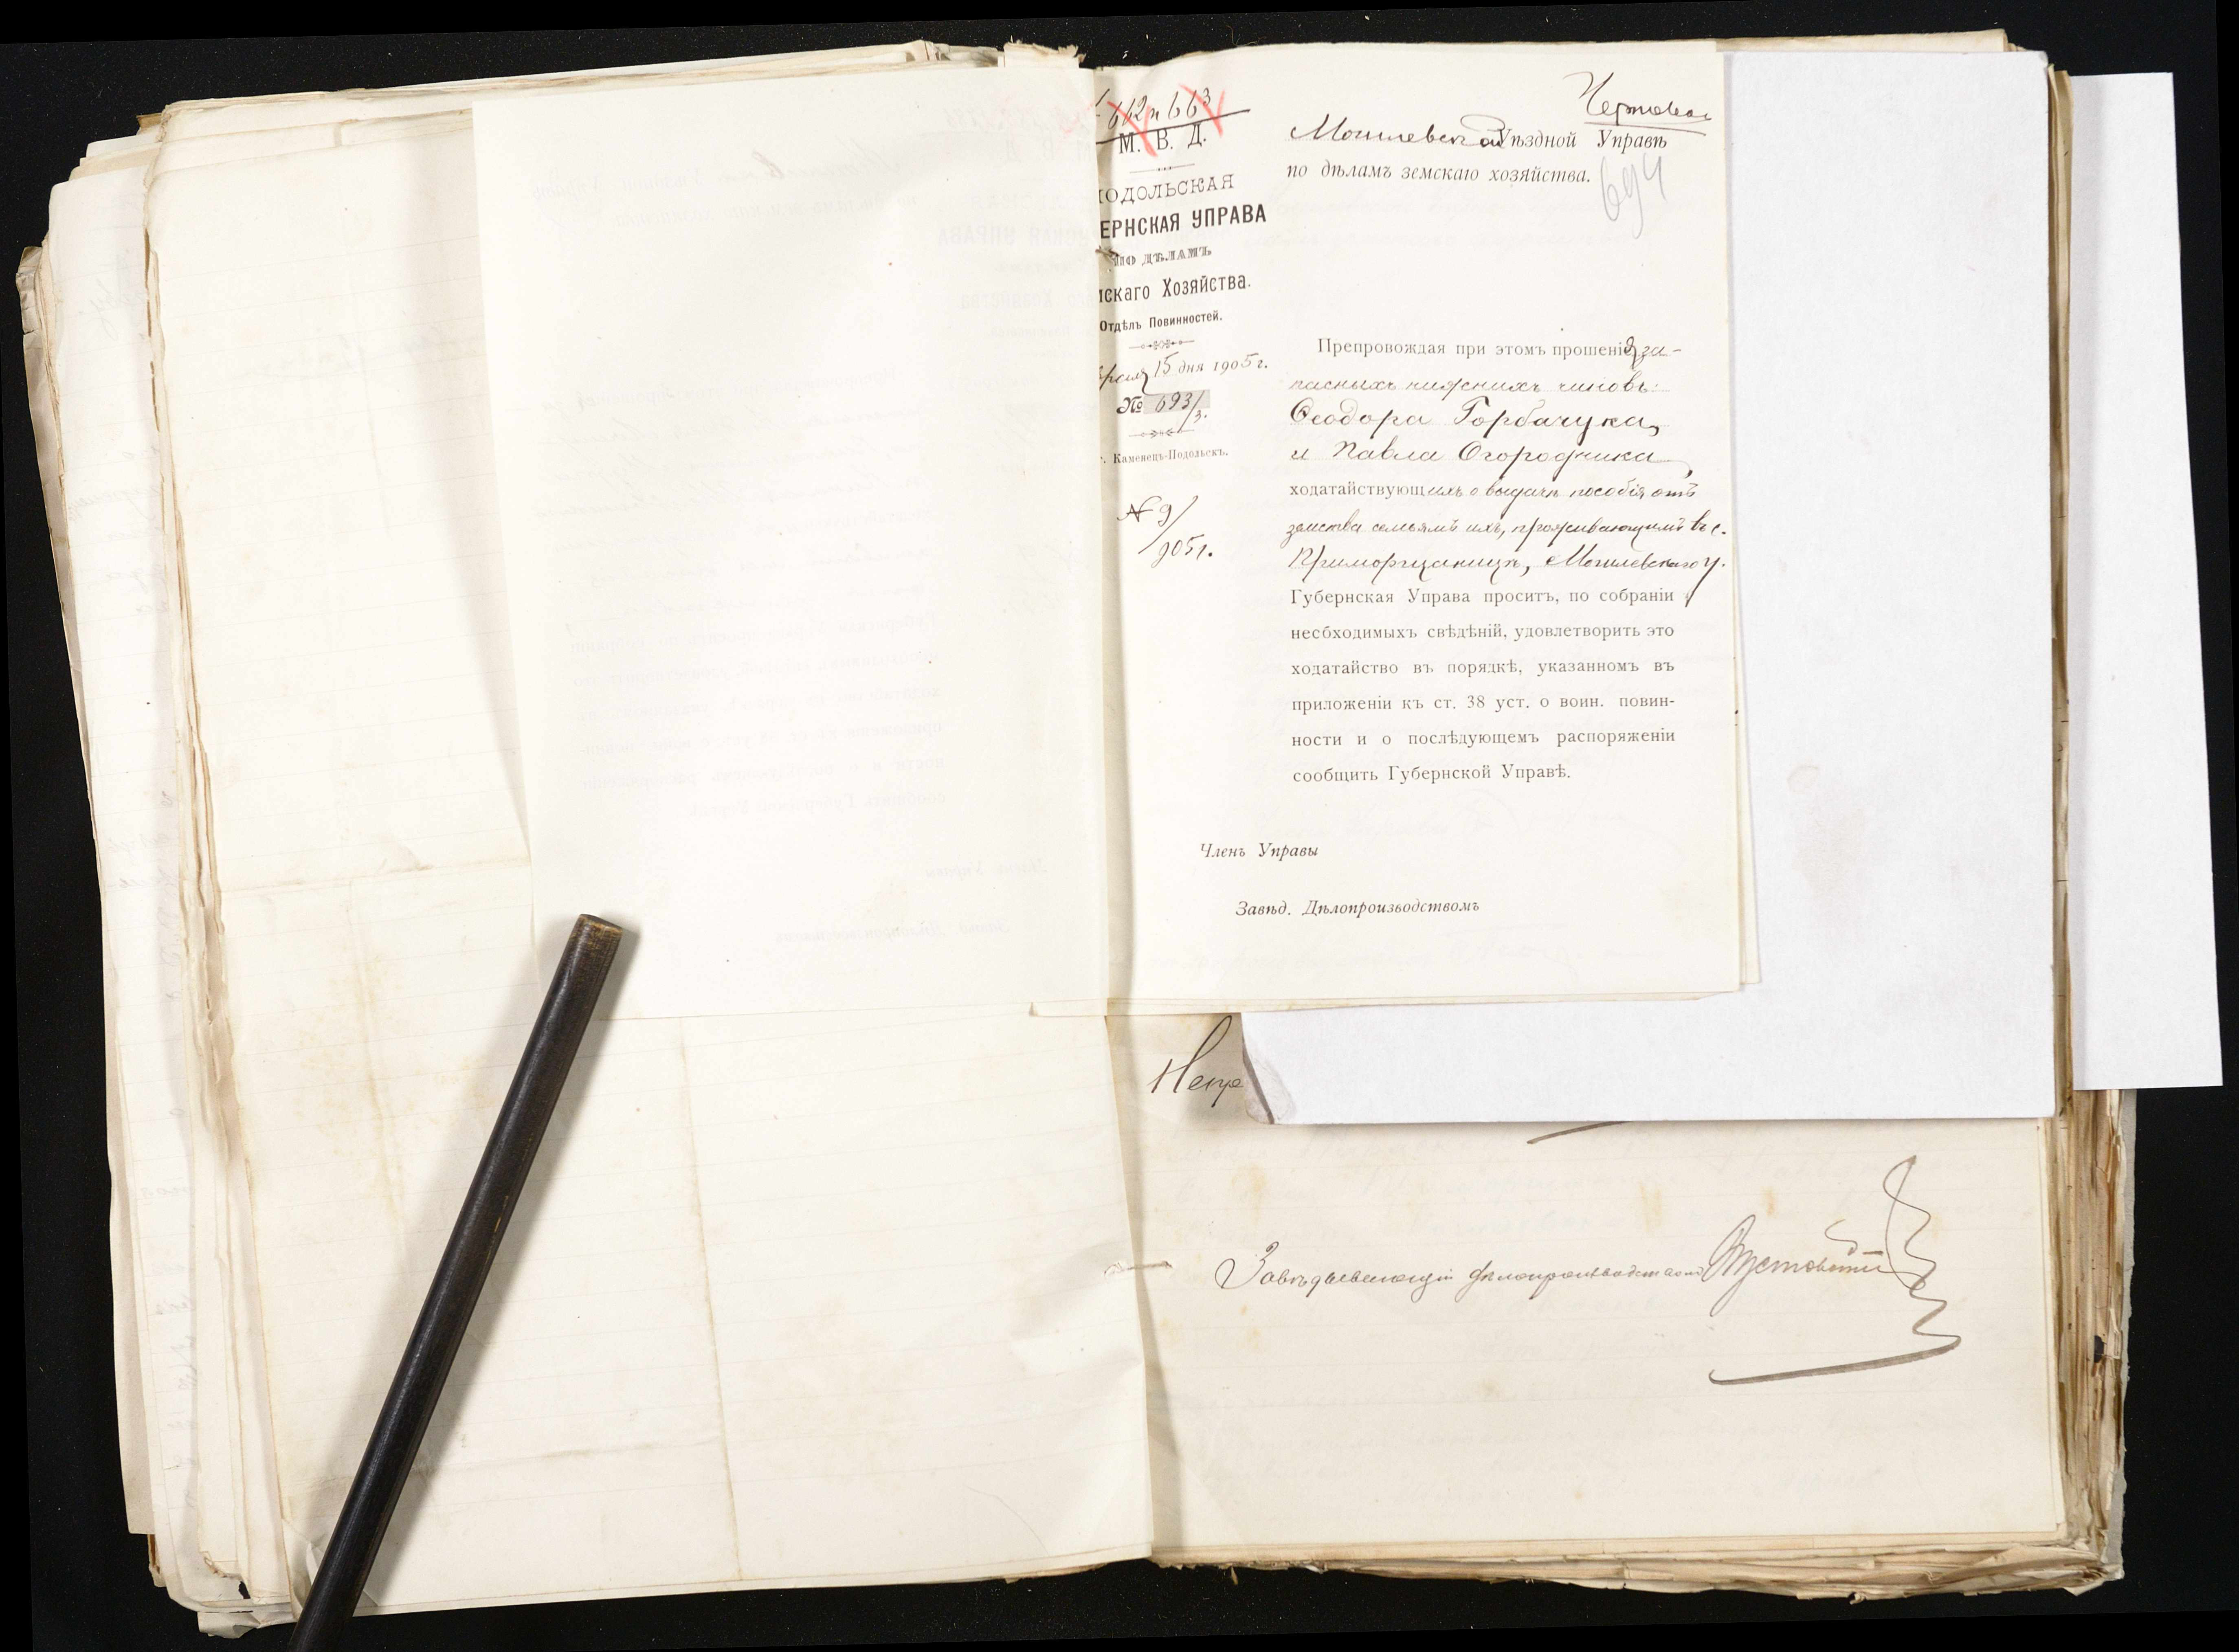 662 и 663
М. В. Д.
ПОДОЛЬСКАЯ
ЕРНСКАЯ УПРАВА
ПО ДѢЛАМЪ
мскаго Хозяйства.
Отдѣлъ Повинностей.
15 дня 1905 г.
№ 693/3.
г. Каменецъ-Подольскъ.
№ 9/
905 г.
Черновая
Могилевской Уѣздной Управѣ
по дѣламъ земскаго хозяйства.
694
Препровождая при этомъ прошенія за-
пасныхъ нижнихъ чиновъ:
Ѳеодора Горбачука,
и Павла Огородника,
ходатайствующихъ о выдачѣ пособія отъ
земства семьямъ ихъ, проживающимъ въ с.
Приморщаницѣ, Могилевскаго у.
Губернская Управа проситъ, по собраніи
несбходимыхъ свѣдѣній, удовлетворить это
ходатайство въ порядкѣ, указанномъ въ
приложеніи къ ст. 38 уст. о воин. повин-
ности и о послѣдующемъ распоряженіи
сообщить Губернской Управѣ.
Членъ Управы
Завѣд. Дѣлопроизводствомъ
Завѣдывающій дѣлопроизводствомъ